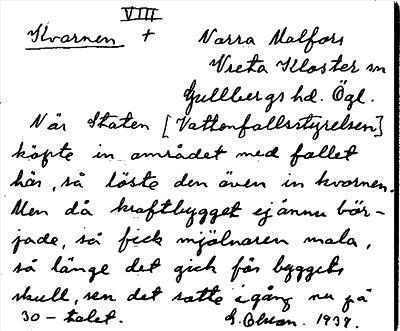 VIII
Kvarnen + Norra Malfors
Vreta Kloster sn
Gullbergs hd. Ögl.
När Staten [Vattenfallsstyrelsen]
köpte in området med fallet
här, så löste den även in kvarnen.
Men då kraftbygget ej ännu bör-
jade, så fick mjölnaren mala,
så länge det gick för byggets
skull, sen det satte igång nu på
30-talet. E. Olsson. 1937.